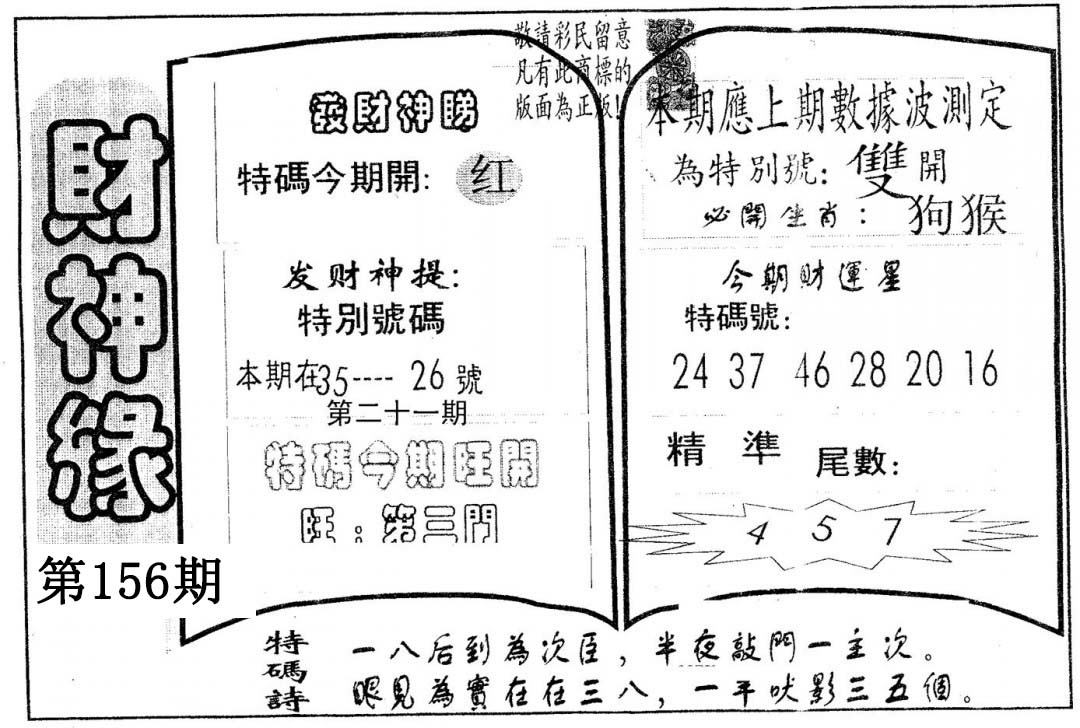 財神緣
第156期
敬請彩民留意
凡有此商標的
版面為正版!
發財神睇
特碼今期開: 红
发财神提:
特別號碼
本期在35---- 26號
第二十一期
特碼今期旺開
旺:第三門
本期應上期數據波測定
為特別號: 雙開
必開生肖: 狗猴
今期財運星
特碼號:
24 37 46 28 20 16
精準 尾數:
4 5 7
特碼詩
一八后到為次臣,半夜敲門一主次。
眼見為實在在三八,一平吠影三五個。